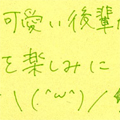 可愛い後輩
を楽しみに
\(^ω^)/